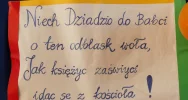 Niech Dziadzio do Babci
o ten odblask woła,
Jak księżyc zaświyci
idąc se z kościoła !